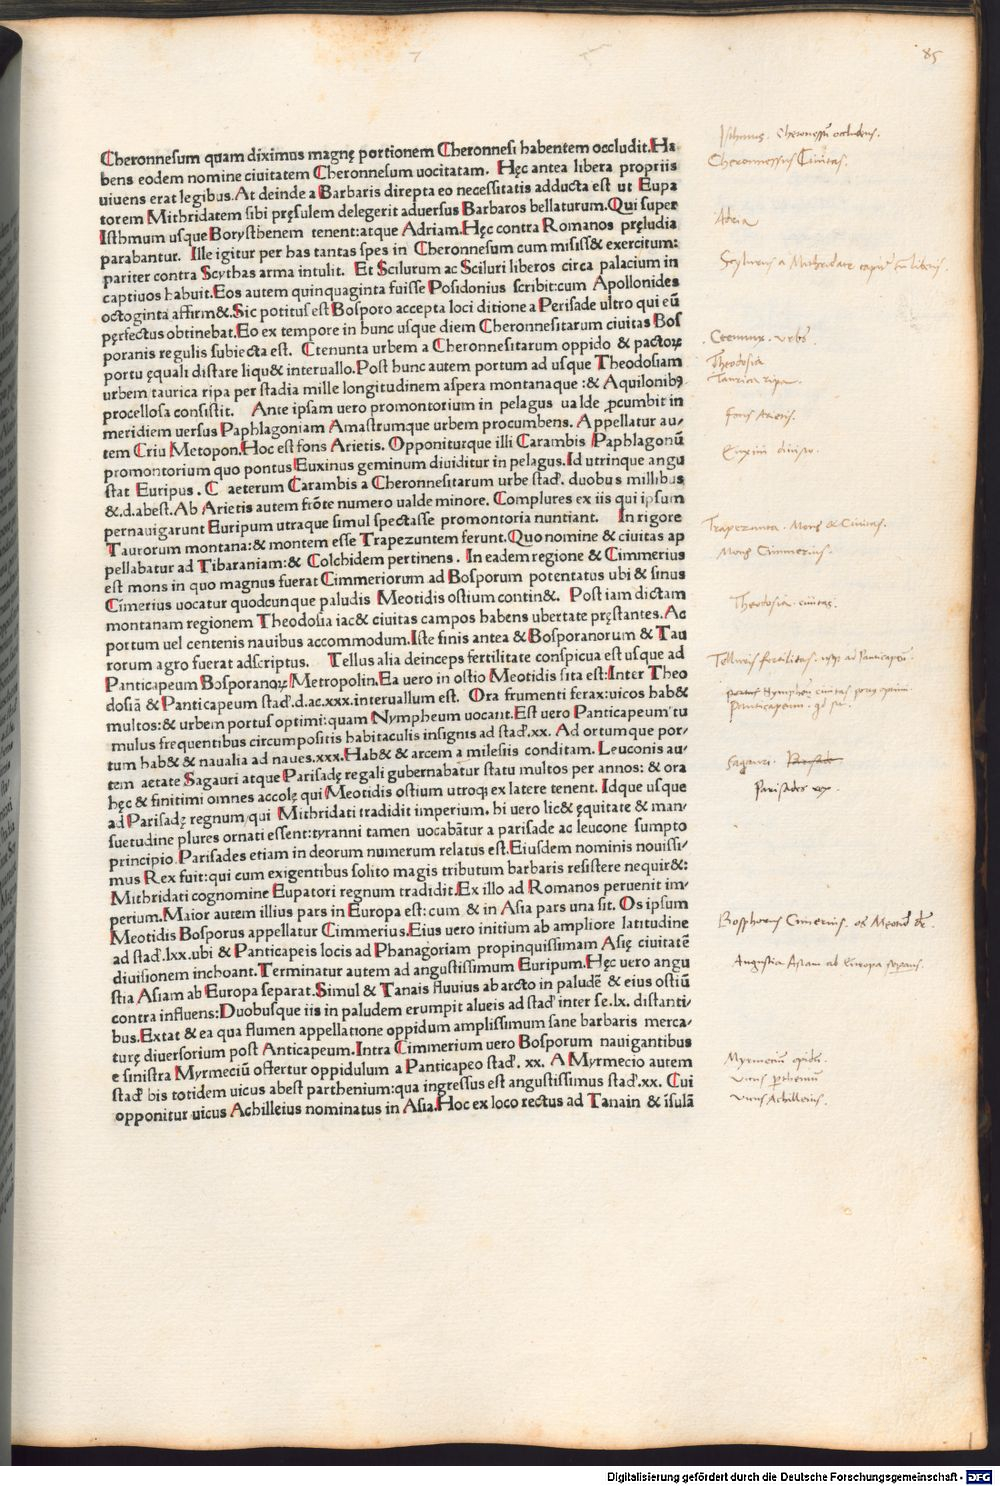 85
Cheronnesum quam diximus magnę portionem Cheronnesi habentem occludit. Ha
bens eodem nomine ciuitatem Cheronnesum uocitatam. Hęc antea libera propriis
uiuens erat legibus. At deinde a Barbaris direpta eo necessitatis adducta est ut Eupa
torem Mithridatem sibi pręsulem delegerit aduersus Barbaros bellaturum. Qui super
Isthmum usque Borysthenem tenent: atque Adriam. Hęc contra Romanos pręludia
parabantur. Ille igitur per has tantas spes in Cheronnesum cum misiss& exercitum:
pariter contra Scythas arma intulit. Et Scilurum ac Sciluri liberos circa palacium in
captiuos habuit. Eos autem quinquaginta fuisse Posidonius scribit: cum Apollonides
octoginta affirm&. Sic potitus est Bosporo accepta loci ditione a Perisade ultro qui eū
pęrfectus obtinebat. Eo ex tempore in hunc usque diem Cheronnesitarum ciuitas Bos
poranis regulis subiecta est. Ctenunta urbem a Cheronnesitarum oppido & pactoꝝ
portu ęquali distare liqu& interuallo. Post hunc autem portum ad usque Theodosiam
urbem taurica ripa per stadia mille longitudinem aspera montanaque :& Aquilonibꝫ
procellosa consistit. Ante ipsam uero promontorium in pelagus ualde ꝓcumbit in
meridiem uersus Paphlagoniam Amastrumque urbem procumbens. Appellatur au-
tem Criu Metopon. Hoc est fons Arietis. Opponiturque illi Carambis Paphlagonū
promontorium quo pontus Euxinus geminum diuiditur in pelagus. Id utrinque angu
stat Euripus. C aeterum Carambis a Cheronnesitarum urbe stad'. duobus millibus
&.d. abest. Ab Arietis autem frōte numero ualde minore. Complures ex iis qui ipsum
pernauigarunt Euripum utraque simul spectasse promontoria nuntiant. In rigore
Taurorum montana: & montem esse Trapezuntem ferunt. Quo nomine & ciuitas ap
pellabatur ad Tibaraniam: & Colchidem pertinens. In eadem regione & Cimmerius
est mons in quo magnus fuerat Cimmeriorum ad Bosporum potentatus ubi & sinus
Cīmerius uocatur quodcunque paludis Meotidis ostium contin&. Post iam dictam
montanam regionem Theodosia iac& ciuitas campos habens ubertate pręstantes. Ac
portum uel centenis nauibus accommodum. Iste finis antea & Bosporanorum & Tau
rorum agro fuerat adscriptus. Tellus alia deinceps fertilitate conspicua est usque ad
Panticapeum Bosporanoꝝ Metropolin. Ea uero in ostio Meotidis sita est: Inter Theo
dosiā & Panticapeum stad'.d.ac.xxx. interuallum est. Ora frumenti ferax: uicos hab&
multos: & urbem portus optimi: quam Nympheum uocant. Est uero Panticapeum tu
mulus frequentibus circumpositis habitaculis insignis ad stad'.xx. Ad ortumque por-
tum hab& & naualia ad naues.xxx. Hab& & arcem a milesiis conditam. Leuconis au-
tem aetate Sagauri atque Parisadę regali gubernabatur statu multos per annos: & ora
hęc & finitimi omnes accolę qui Meotidis ostium utroqꝫ ex latere tenent. Idque usque
ad Parisadę regnum, qui Mithridati tradidit imperium. hi uero lic& ęquitate & man-
suetudine plures ornati essent: tyranni tamen uocabātur a parisade ac leucone sumpto
principio. Parisades etiam in deorum numerum relatus est. Eiusdem nominis nouissi-
mus Rex fuit: qui cum exigentibus solito magis tributum barbaris resistere nequir&:
Mithridati cognomine Eupatori regnum tradidit. Ex illo ad Romanos peruenit im-
perium. Maior autem illius pars in Europa est: cum & in Asia pars una sit. Os ipsum
Meotidis Bosporus appellatur Cimmerius. Eius uero initium ab ampliore latitudine
ad stad'.lxx. ubi & Panticapeis locis ad Phanagoriam propinquissimam Asię ciuitatē
diuisionem inchoant. Terminatur autem ad angustissimum Euripum. Hęc uero angu
stia Asiam ab Europa separat. Simul & Tanais fluuius ab arcto in paludē & eius ostiū
contra influens: Duobusque iis in paludem erumpit alueis ad stad' inter se.lx. distanti-
bus. Extat & ea qua flumen appellatione oppidum amplissimum sane barbaris merca-
turę diuersorium post Anticapeum. Intra Cimmerium uero Bosporum nauigantibus
e sinistra Myrmeciū offertur oppidulum a Panticapeo stad'. xx. A Myrmecio autem
stad' bis totidem uicus abest parthenium: qua ingressus est angustissimus stad'.xx. Cui
opponitur uicus Achilleius nominatus in Asia. Hoc ex loco rectus ad Tanain & īsulā
Isthmus. Cheronessū occludens.
Cheronnessus Ciuitas.
Adria
Scylurus a Mithridate capitur cū liberis.
Ctenunx. urbs.
Theodosia
Taurica ripa.
fons Arietis.
Euxini diuisio.
Trapezunta. Mons & Ciuitas.
Mons Cimmerius.
Theodosia. ciuitas.
Telluris fertilitas. usqꝫ ad Panticapeū.
Nympheū ciuitas portus optimi.
Panticapeum.
Sagauri.
Parisades rex.
Bosphorus Cimerius. os Meotid'
Angustia Asiam ab Europa separans.
Myrmeciū opidū.
Vicus ꝑtheniū
Vicus Achilleius.
Digitalisierung gefördert durch die Deutsche Forschungsgemeinschaft - DFG